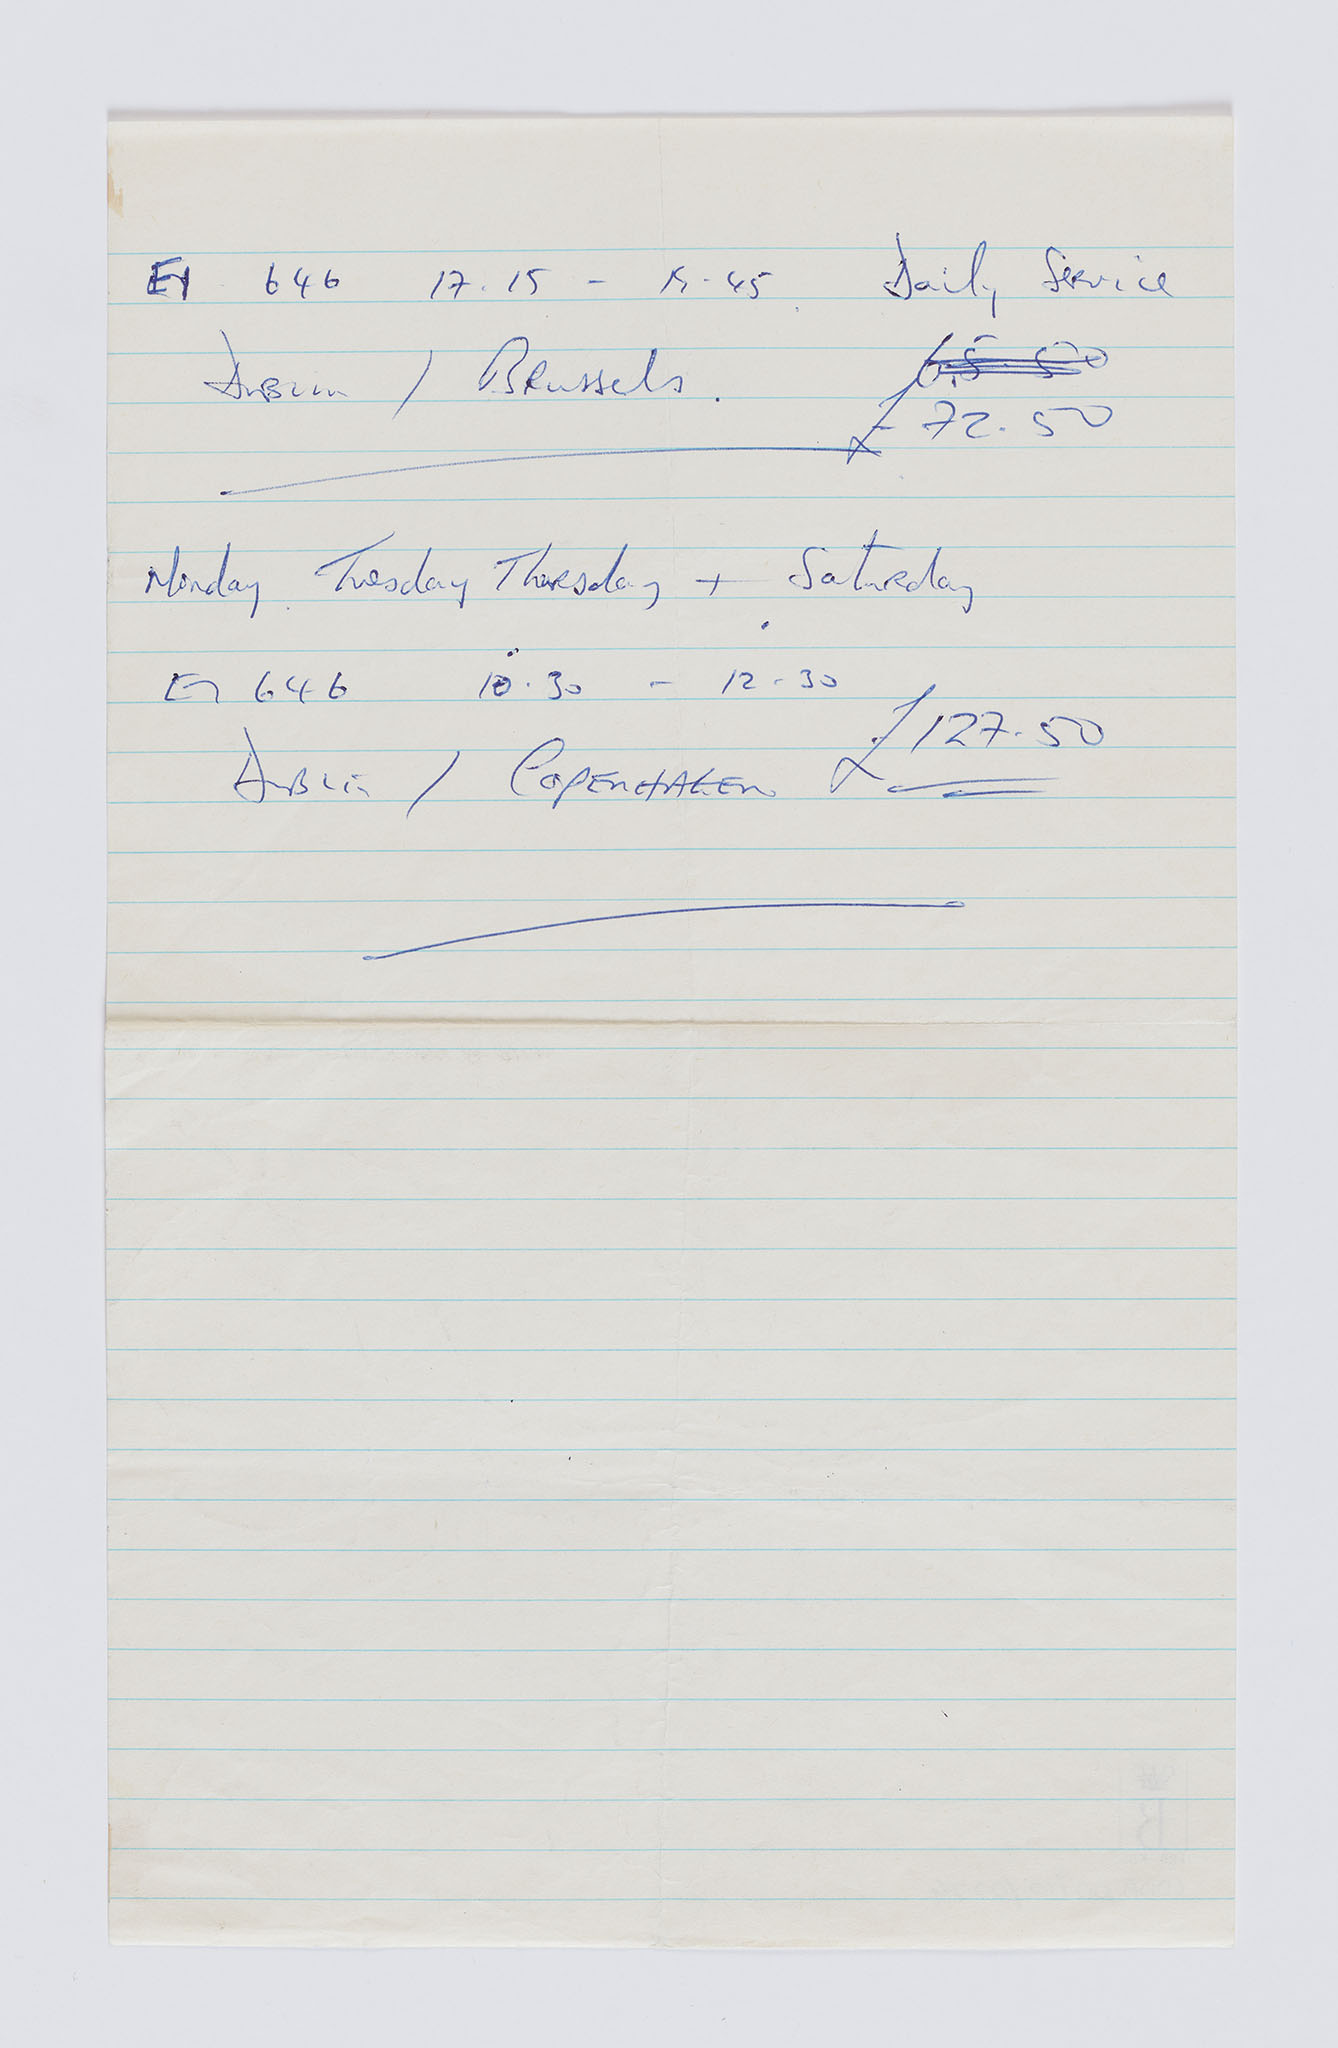 EI 646 17.15 - 19.45 Daily Service
Dublin / Brussels. 65.50
£72.50
Monday Tuesday Thursday + Saturday
EI 646 10.30 - 12.30
£127.50
Dublin / COPENHAGEN